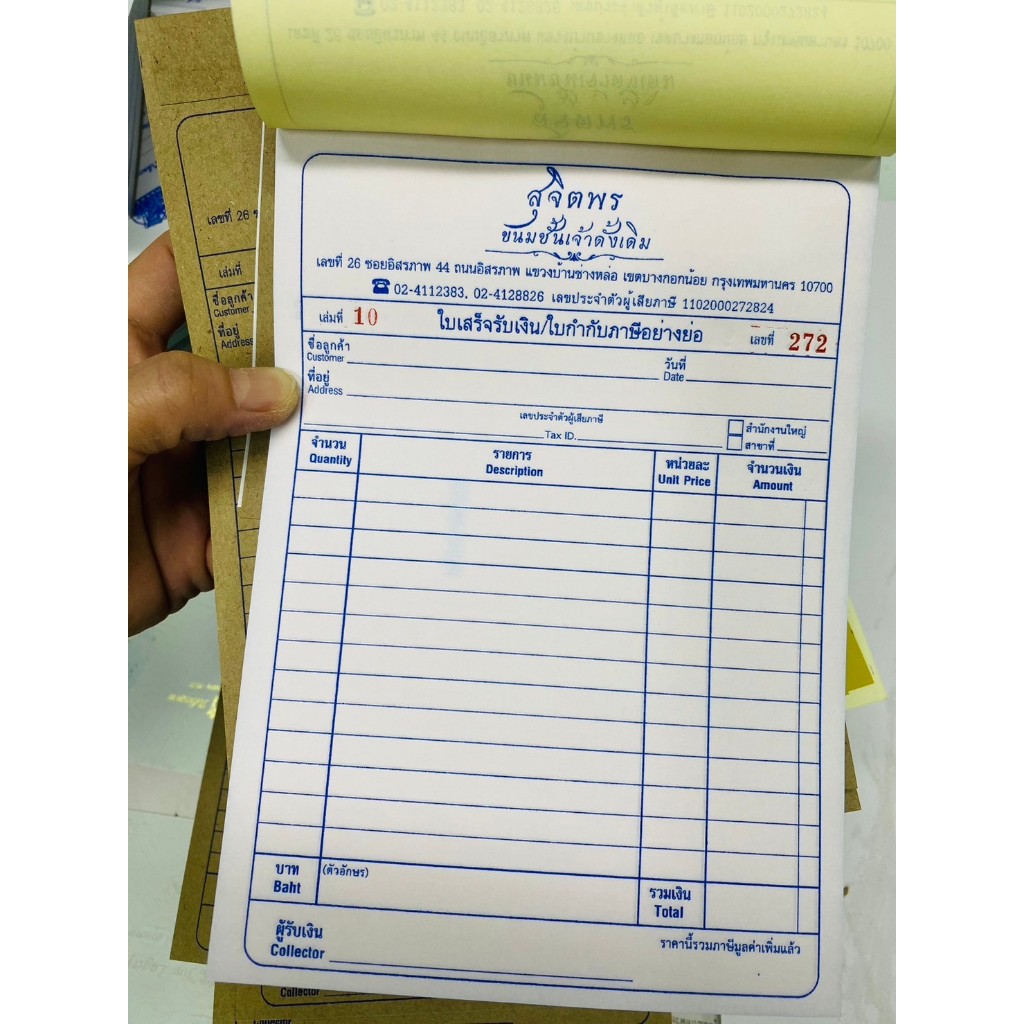 สุจิตพร
ขนมชั้นเจ้าดั้งเดิม
เลขที่ 26 ซอยอิสรภาพ 44 ถนนอิสรภาพ แขวงบ้านช่างหล่อ เขตบางกอกน้อย กรุงเทพมหานคร 10700
☎ 02-4112383, 02-4128826 เลขประจำตัวผู้เสียภาษี 1102000272824
เล่มที่ 10 ใบเสร็จรับเงิน/ใบกำกับภาษีอย่างย่อ เลขที่ 272
ชื่อลูกค้า วันที่
Customer Date
ที่อยู่
Address
เลขประจำตัวผู้เสียภาษี สำนักงานใหญ่
Tax ID. สาขาที่
จำนวน รายการ หน่วยละ จำนวนเงิน
Quantity Description Unit Price Amount
บาท (ตัวอักษร) รวมเงิน
Baht Total
ผู้รับเงิน ราคานี้รวมภาษีมูลค่าเพิ่มแล้ว
Collector
เลขที่ 26
เล่มที่
ชื่อลูกค้า
Customer
ที่อยู่
Address
Collector